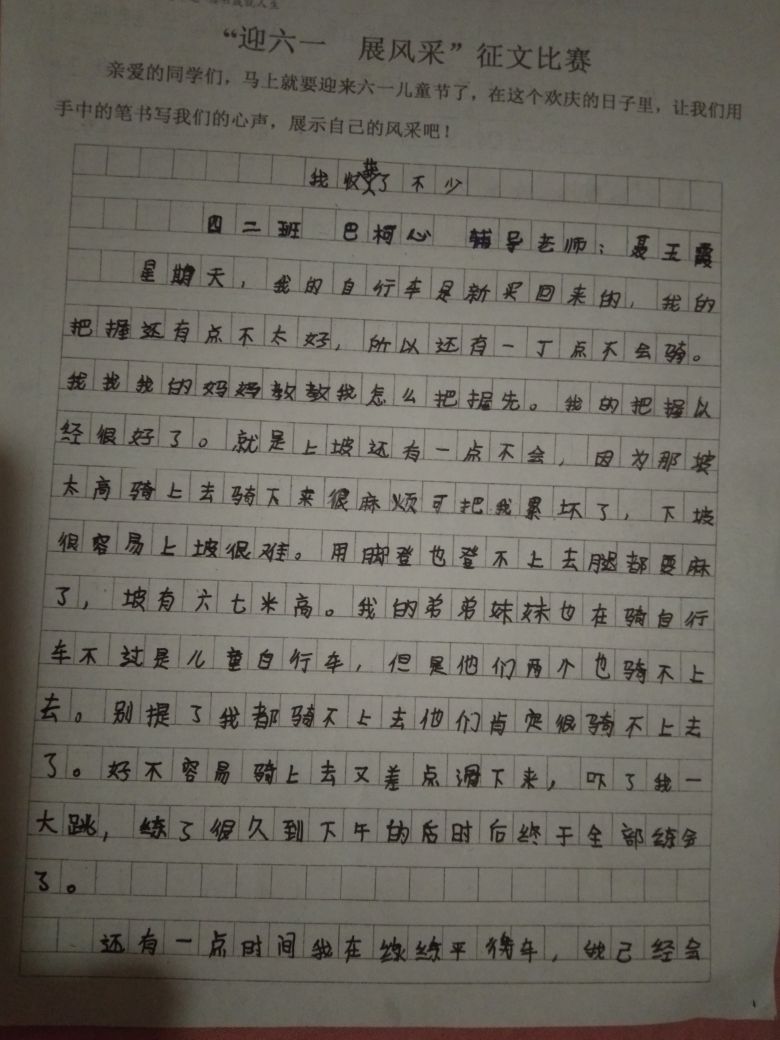 “迎六一 展风采”征文比赛
亲爱的同学们，马上就要迎来六一儿童节了，在这个欢庆的日子里，让我们用
手中的笔书写我们的心声，展示自己的风采吧！
我收获了不少
四二班 巴柯心 辅导老师：聂玉霞
星期天，我的自行车是新买回来的，我的
把握还有点不太好，所以还有一丁点不会骑。
我找我的妈妈教教我怎么把握先。我的把握以
经很好了。就是上坡还有一点不会，因为那坡
太高骑上去骑下来很麻烦可把我累坏了，下坡
很容易上坡很难。用脚登也登不上去腿都要麻
了，坡有六七米高。我的弟弟妹妹也在骑自行
车不过是儿童自行车，但是他们两个也骑不上
去。别提了我都骑不上去他们肯定很骑不上去
了。好不容易骑上去又差点滑下来，吓了我一
大跳，练了很久到下午的后时后终于全部练会
了。
还有一点时间我在练练平衡车，她己经会